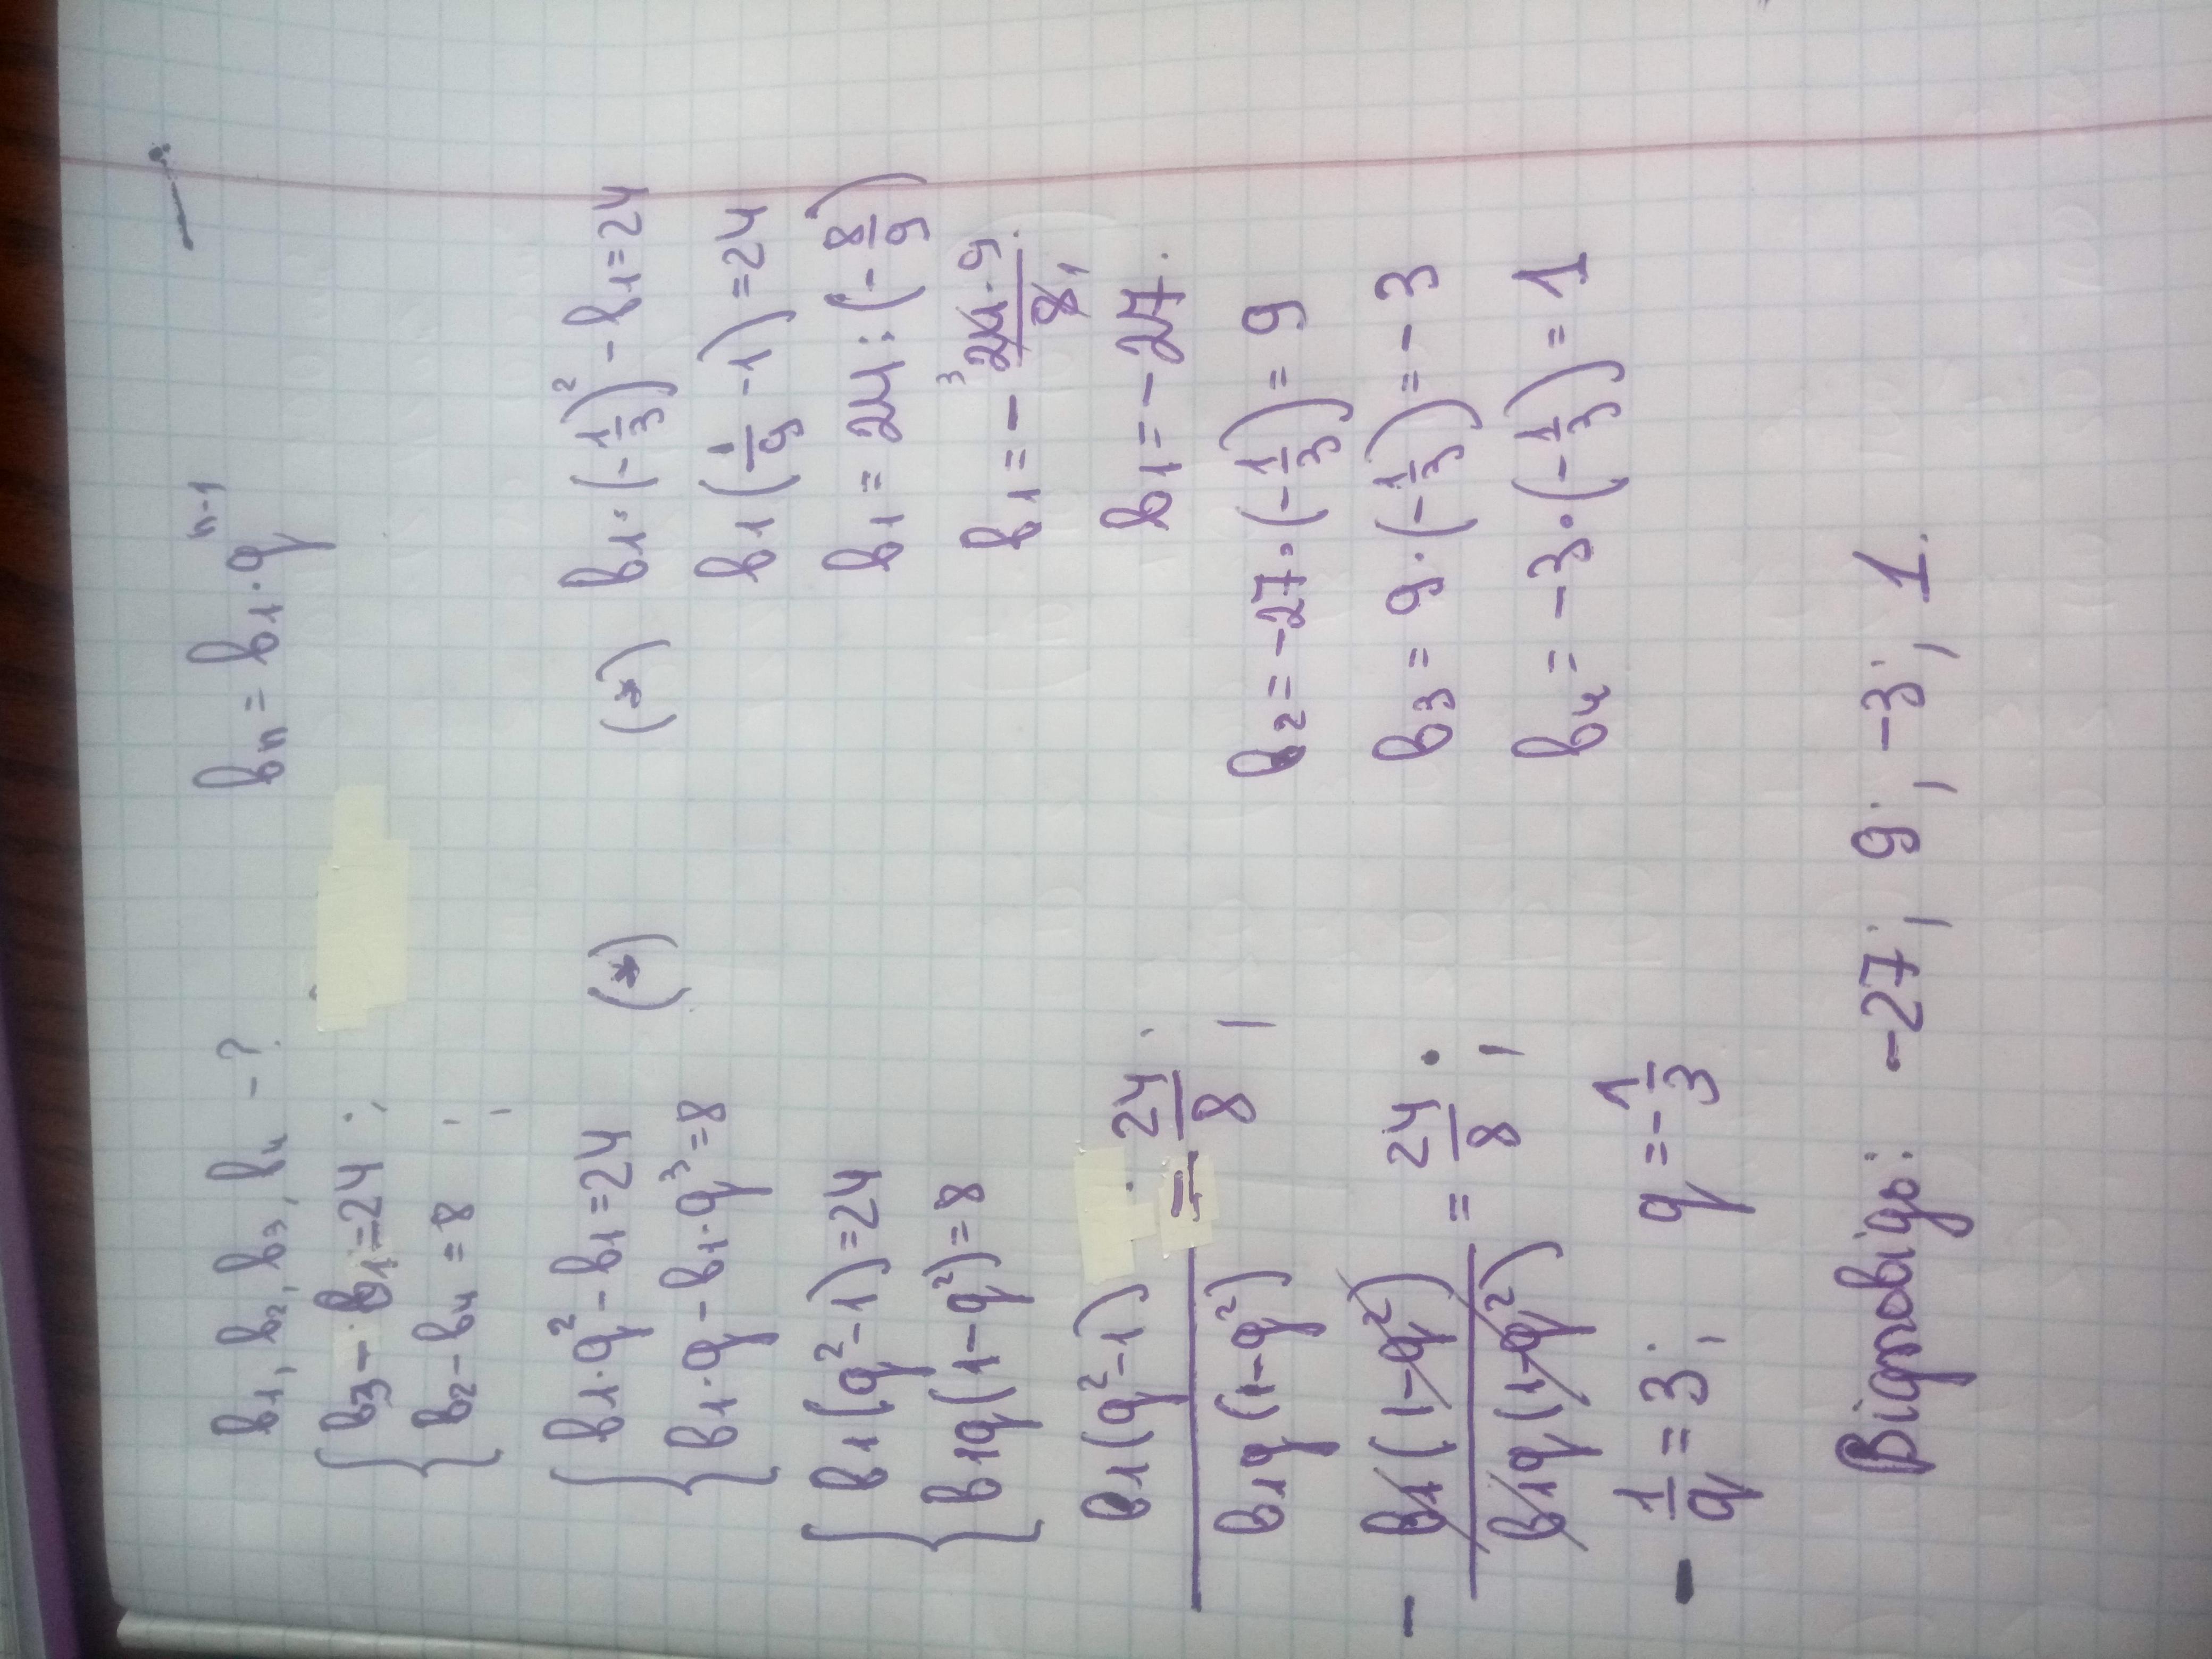 в₁, в₂, в₃, в₄ - ?
вₙ = в₁ · qⁿ⁻¹
{ в₃ - в₁ = 24 ;
{ в₂ - в₄ = 8 ;
{ в₁ · q² - в₁ = 24
{ в₁ · q - в₁ · q³ = 8 (*)
{ в₁(q² - 1) = 24
{ в₁q(1 - q²) = 8
в₁(q² - 1) / в₁q(1 - q²) = 24/8 ;
- в₁(1 - q²) / в₁q(1 - q²) = 24/8 ;
- 1/q = 3 ; q = - 1/3
(*) в₁ · (- 1/3)² - в₁ = 24
в₁(1/9 - 1) = 24
в₁ = 24 : (- 8/9)
в₁ = - ³24 · 9 / 8₁ .
в₁ = - 27.
в₂ = -27 · (- 1/3) = 9
в₃ = 9 · (- 1/3) = - 3
в₄ = - 3 · (- 1/3) = 1
Відповідь: -27 ; 9 ; -3 ; 1.